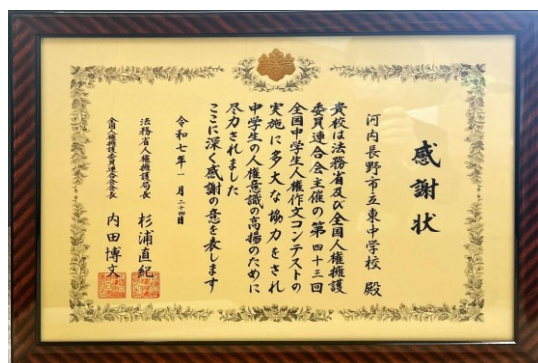 感謝状
河内長野市立東中学校 殿
貴校は法務省及び全国人権擁護
委員連合会主催の第四十三回
全国中学生人権作文コンテストの
実施に多大な協力をされ
中学生の人権意識の高揚のために
尽力されました
ここに深く感謝の意を表します
令和七年一月二十四日
法務省人権擁護局長 杉浦直紀
全国人権擁護委員連合会会長 内田博文